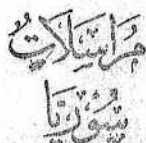 مُرَاسِيلَاتُ
سُوْرِيَا